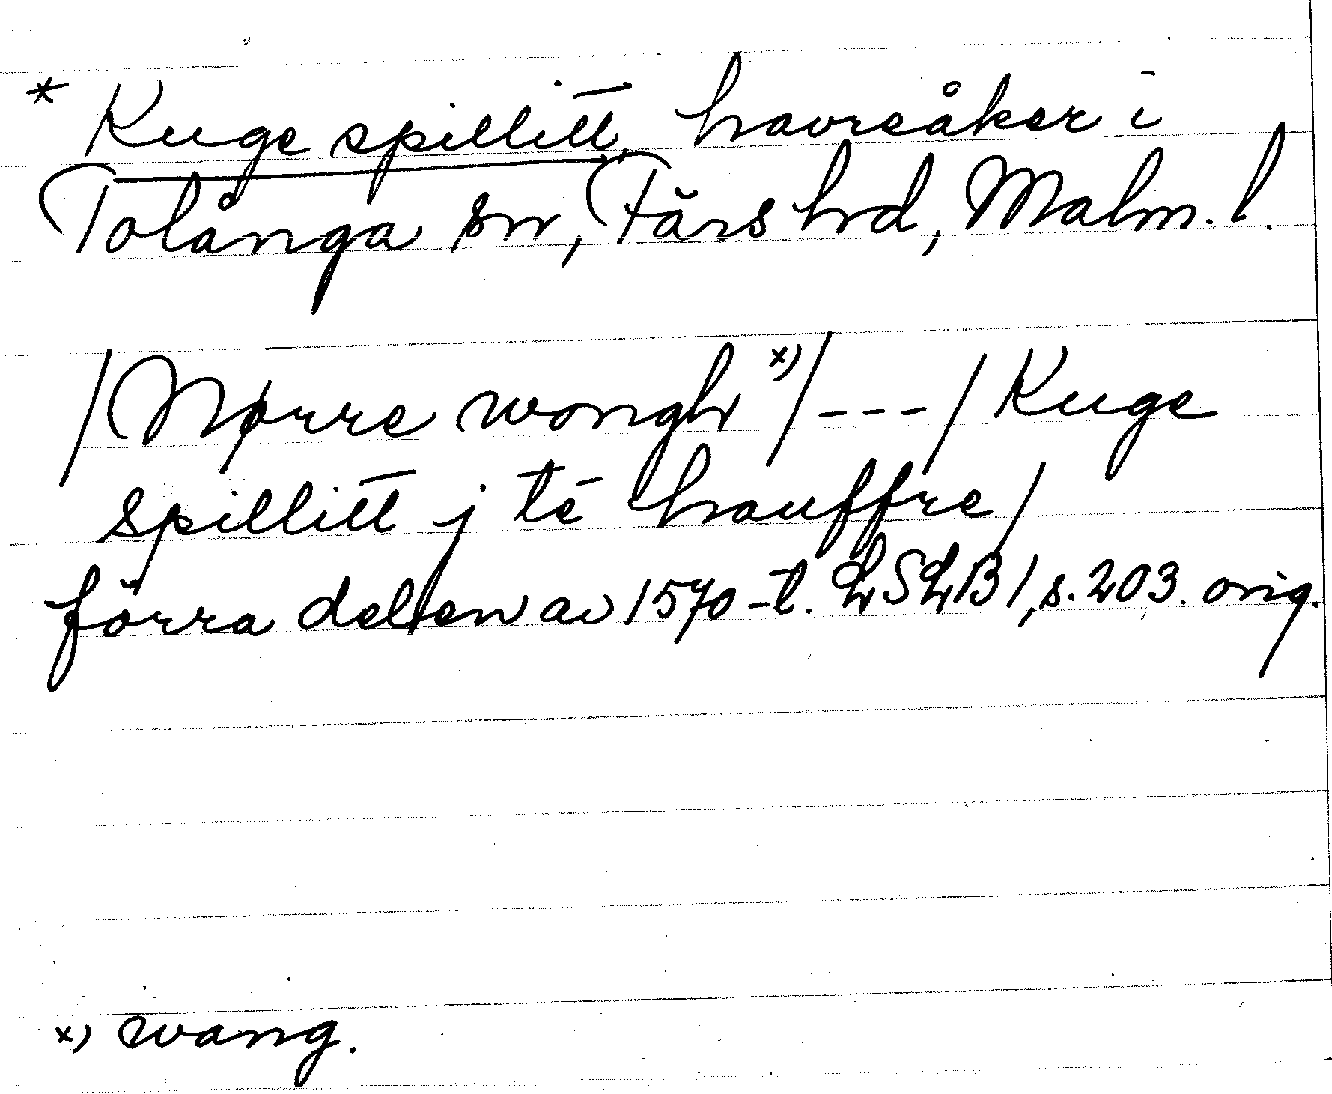 * Kuge spillitt, havreåker i
Tolånga sn, Färs hd, Malm. l.
/Nørre wongh x)/ --- / Kuge
spillitt j té hauffre/
förra delen av 1570-t. LSLB1, s. 203. orig.
x) wang.